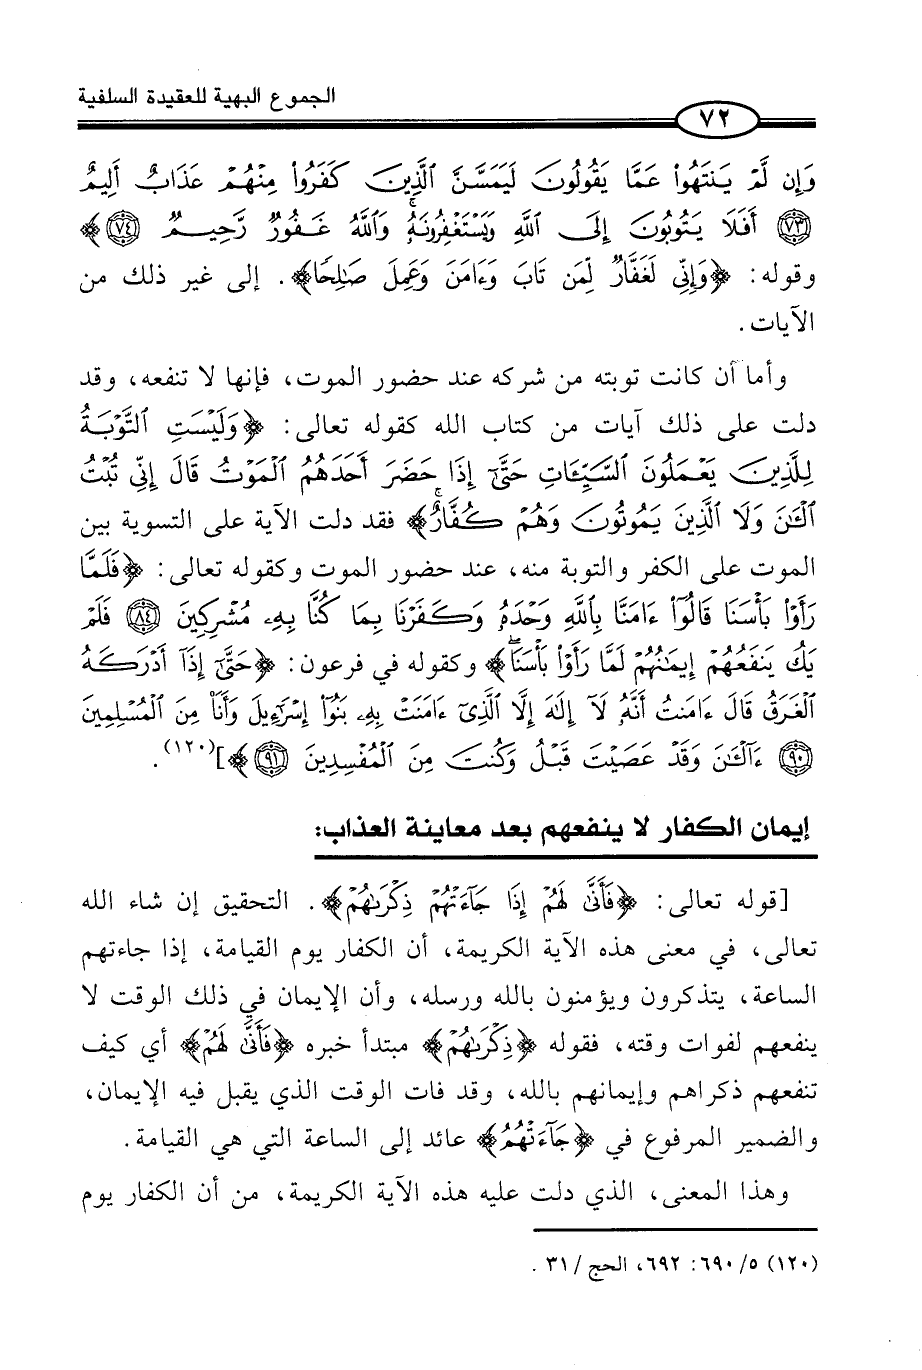 الجموع البهية للعقيدة السلفية
٧٢
وَإِن لَّمْ يَنتَهُوا۟ عَمَّا يَقُولُونَ لَيَمَسَّنَّ ٱلَّذِينَ كَفَرُوا۟ مِنْهُمْ عَذَابٌ أَلِيمٌ
٧٣ أَفَلَا يَتُوبُونَ إِلَى ٱللَّهِ وَيَسْتَغْفِرُونَهُۥ ۚ وَٱللَّهُ غَفُورٌ رَّحِيمٌ ٧٤﴾
وقوله: ﴿وَإِنِّى لَغَفَّارٌ لِّمَن تَابَ وَءَامَنَ وَعَمِلَ صَـٰلِحًا﴾. إلى غير ذلك من
الآيات.
وأما أن كانت توبته من شركه عند حضور الموت، فإنها لا تنفعه، وقد
دلت على ذلك آيات من كتاب الله كقوله تعالى: ﴿وَلَيْسَتِ ٱلتَّوْبَةُ
لِلَّذِينَ يَعْمَلُونَ ٱلسَّيِّـَٔاتِ حَتَّىٰٓ إِذَا حَضَرَ أَحَدَهُمُ ٱلْمَوْتُ قَالَ إِنِّى تُبْتُ
ٱلْـَٔـٰنَ وَلَا ٱلَّذِينَ يَمُوتُونَ وَهُمْ كُفَّارٌ ۚ﴾ فقد دلت الآية على التسوية بين
الموت على الكفر والتوبة منه، عند حضور الموت وكقوله تعالى: ﴿فَلَمَّا
رَأَوْا۟ بَأْسَنَا قَالُوٓا۟ ءَامَنَّا بِٱللَّهِ وَحْدَهُۥ وَكَفَرْنَا بِمَا كُنَّا بِهِۦ مُشْرِكِينَ ٨٤ فَلَمْ
يَكُ يَنفَعُهُمْ إِيمَـٰنُهُمْ لَمَّا رَأَوْا۟ بَأْسَنَا ۖ﴾ وكقوله في فرعون: ﴿حَتَّىٰٓ إِذَآ أَدْرَكَهُ
ٱلْغَرَقُ قَالَ ءَامَنتُ أَنَّهُۥ لَآ إِلَـٰهَ إِلَّا ٱلَّذِىٓ ءَامَنَتْ بِهِۦ بَنُوٓا۟ إِسْرَٰٓءِيلَ وَأَنَا۠ مِنَ ٱلْمُسْلِمِينَ
٩٠ ءَآلْـَٔـٰنَ وَقَدْ عَصَيْتَ قَبْلُ وَكُنتَ مِنَ ٱلْمُفْسِدِينَ ٩١﴾](١٢٠).
إيمان الكفار لا ينفعهم بعد معاينة العذاب:
[قوله تعالى: ﴿فَأَنَّىٰ لَهُمْ إِذَا جَآءَتْهُمْ ذِكْرَىٰهُمْ﴾. التحقيق إن شاء الله
تعالى، في معنى هذه الآية الكريمة، أن الكفار يوم القيامة، إذا جاءتهم
الساعة، يتذكرون ويؤمنون بالله ورسله، وأن الإيمان في ذلك الوقت لا
ينفعهم لفوات وقته، فقوله ﴿ذِكْرَىٰهُمْ﴾ مبتدأ خبره ﴿فَأَنَّىٰ لَهُمْ﴾ أي كيف
تنفعهم ذكراهم وإيمانهم بالله، وقد فات الوقت الذي يقبل فيه الإيمان،
والضمير المرفوع في ﴿جَآءَتْهُمْ﴾ عائد إلى الساعة التي هي القيامة.
وهذا المعنى، الذي دلت عليه هذه الآية الكريمة، من أن الكفار يوم
(١٢٠) ٥/ ٦٩٠: ٦٩٢، الحج / ٣١.